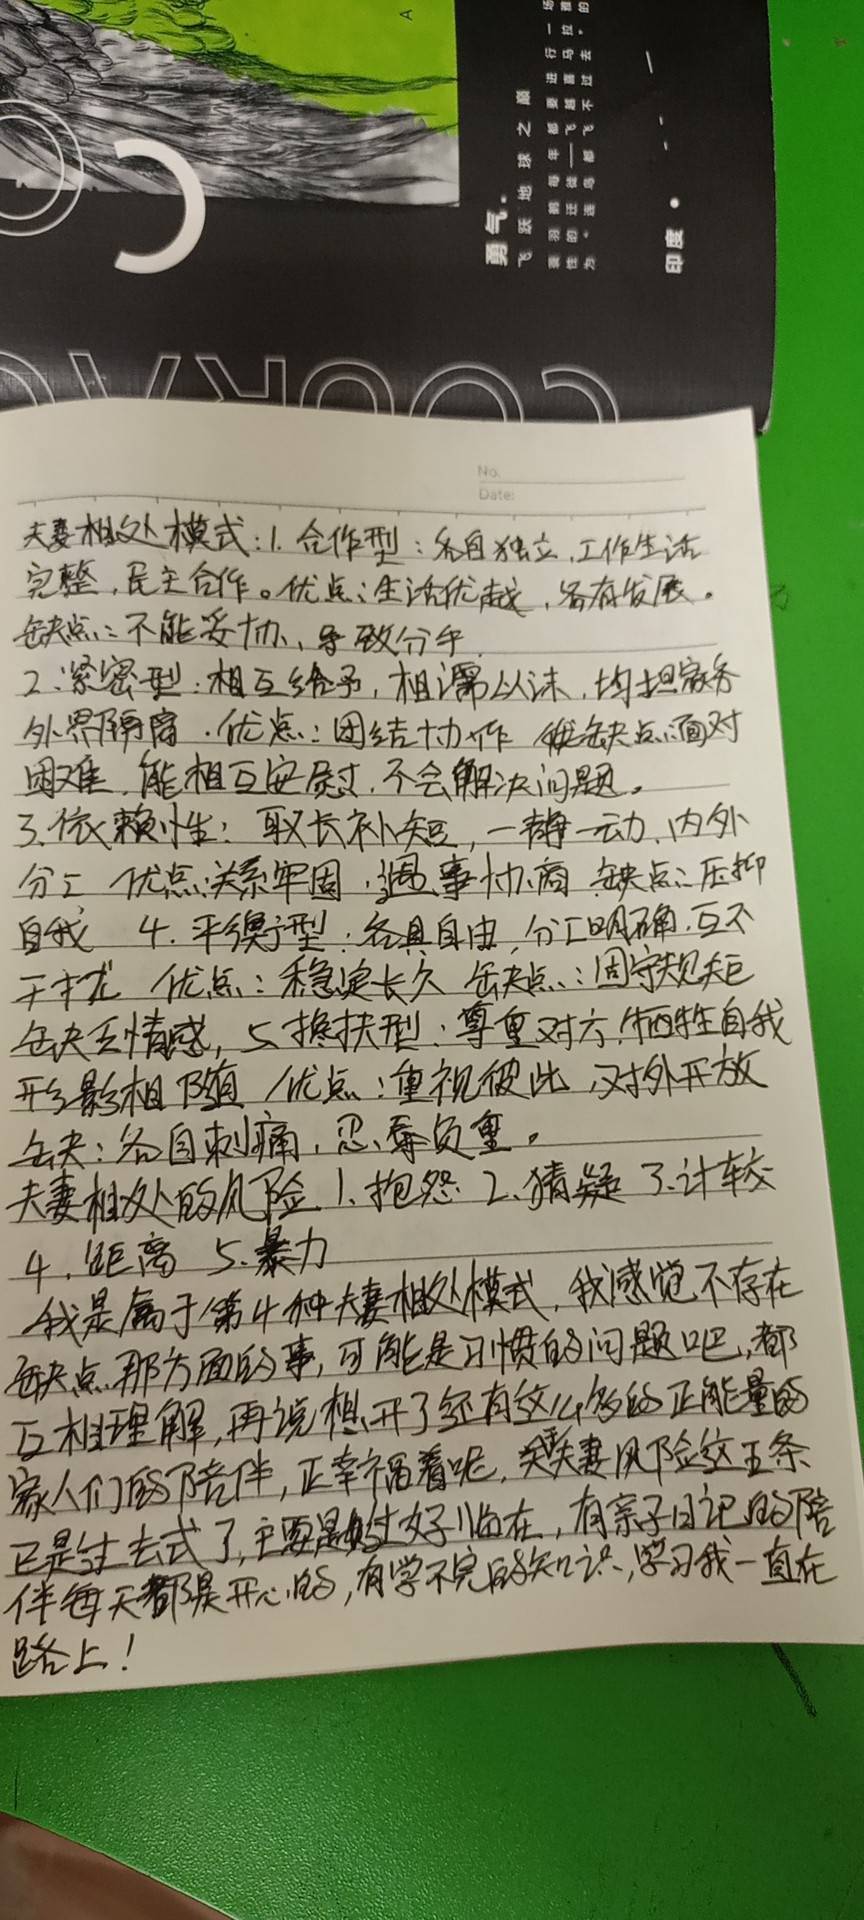 勇气。
飞跃地球之巅
蓑羽鹤每年都要进行一场
性的迁徙——飞越喜马拉雅
为“连鸟都飞不过去”的
印度
No.
Date:
夫妻相处模式:1.合作型:各自独立,工作生活
完整,民主合作。优点:生活优越,各有发展。
缺点:不能妥协,导致分手
2.紧密型:相互给予,相濡以沫,均担家务
外界隔离.优点:团结协作 缺点:面对
困难,能相互安慰,不会解决问题。
3.依赖性:取长补短,一静一动,内外
分工 优点:关系牢固,遇事协商 缺点:压抑
自我 4.平衡型:各具自由,分工明确,互不
干扰 优点:稳定长久 缺点:固守规矩
缺乏情感,5.搀扶型:尊重对方,牺牲自我
形影相随 优点:重视彼此,对外开放
缺:各自刺痛,忍辱负重。
夫妻相处的风险 1.抱怨 2.猜疑 3.计较
4.距离 5.暴力
我是属于第4种夫妻相处模式,我感觉不存在
缺点那方面的事,可能是习惯的问题吧,都
互相理解,再说想开了还有这么多的正能量的
家人们的陪伴,正幸福着呢,夫妻风险这五条
已是过去式了,主要是过好当在,有亲子日记的陪
伴每天都是开心的,有学不完的知识,学习我一直在
路上!